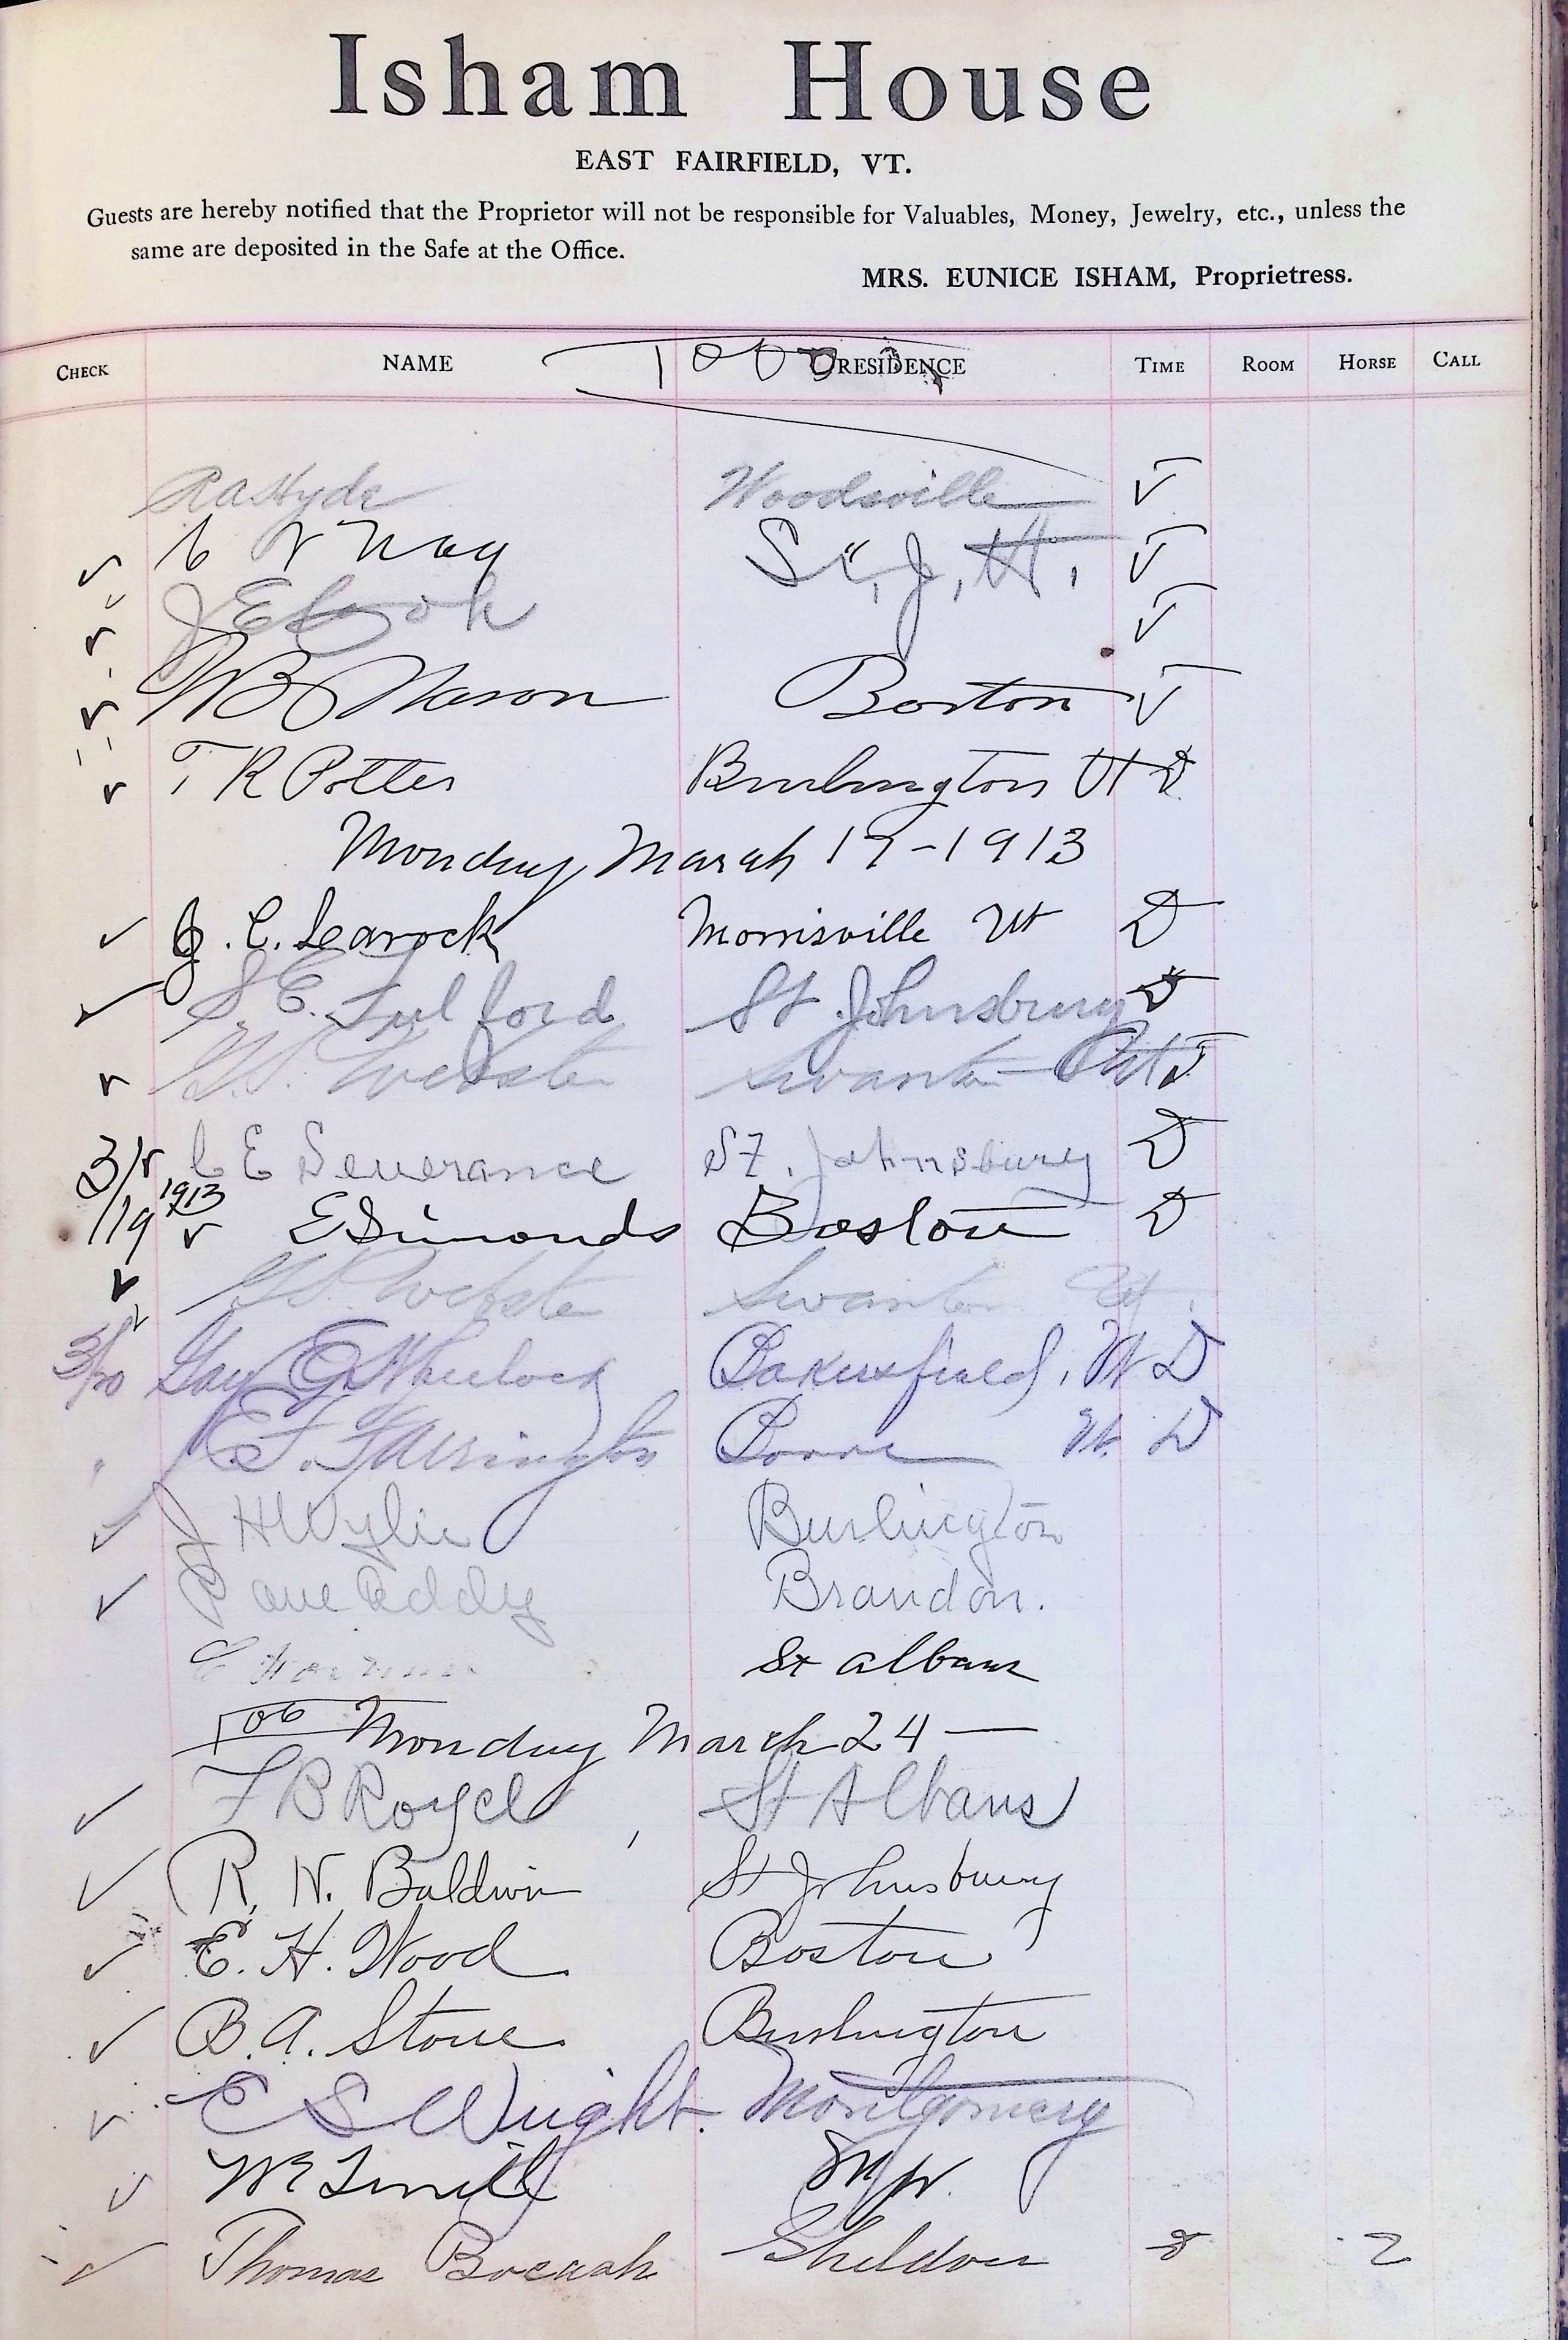 Isham House
EAST FAIRFIELD, VT.
Guests are hereby notified that the Proprietor will not be responsible for Valuables, Money, Jewelry, etc., unless the
same are deposited in the Safe at the Office.
MRS. EUNICE ISHAM, Proprietress.
CHECK NAME RESIDENCE TIME ROOM HORSE CALL
R A Hyde Woodsville
Nay St. J, Vt.
J E Cook
W B Mason Boston
T R Potter Burlington Vt D
Monday March 17-1913
J. C. Learock Morrisville Vt D
S. E. Fulford St Johnsbury D
G.S. Webster Swanton
3/ C E Severance St. Johnsbury D
/19 1913 E Simonds Boston D
G.S. Webster Swanton Vt.
3/20 Guy G Wheelock Bakersfield, Vt D
E. F. Farrington Vt. D
J H Wylie Burlington
Dave Eddy Brandon.
St Albans
Monday March 24 —
F B St Albans
R. N. Baldwin St Johnsbury
E. H. Wood Boston
B. A. Stone Burlington
E S Wright. Montgomery
W E
Thomas Sheldon 2